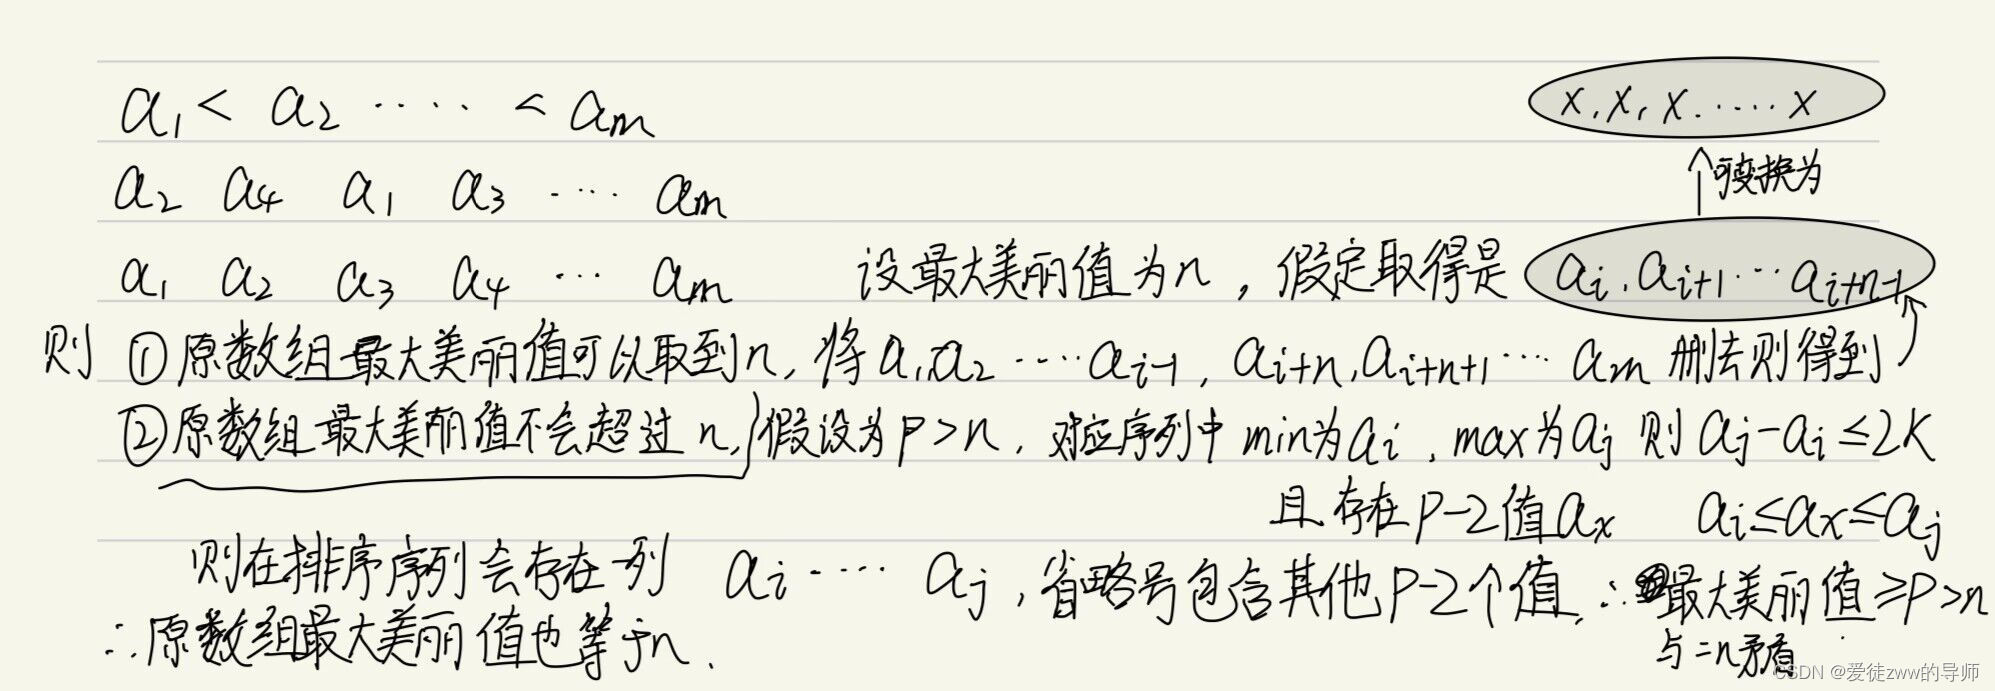 a₁ < a₂ ····· < aₘ
x, x, x. ···· x
a₂ a₄ a₁ a₃ ···· aₘ
↑可变换为
a₁ a₂ a₃ a₄ ··· aₘ 设最大美丽值为n，假定取得是 aᵢ, aᵢ₊₁ ··· aᵢ₊ₙ₋₁
则 ①原数组最大美丽值可以取到n, 将 a₁,a₂ ····· aᵢ₋₁, aᵢ₊ₙ, aᵢ₊ₙ₊₁ ··· aₘ 删去则得到
②原数组最大美丽值不会超过 n, 假设为 P>n, 对应序列中 min为aᵢ, max为aⱼ 则 aⱼ-aᵢ≤2K
且存在P-2值aₓ aᵢ≤aₓ≤aⱼ
则在排序序列会存在一列 aᵢ ····· aⱼ, 省略号包含其他P-2个值, ∴最大美丽值≥P>n
∴原数组最大美丽值也等于n.
与=n矛盾
CSDN @爱徒zww的导师